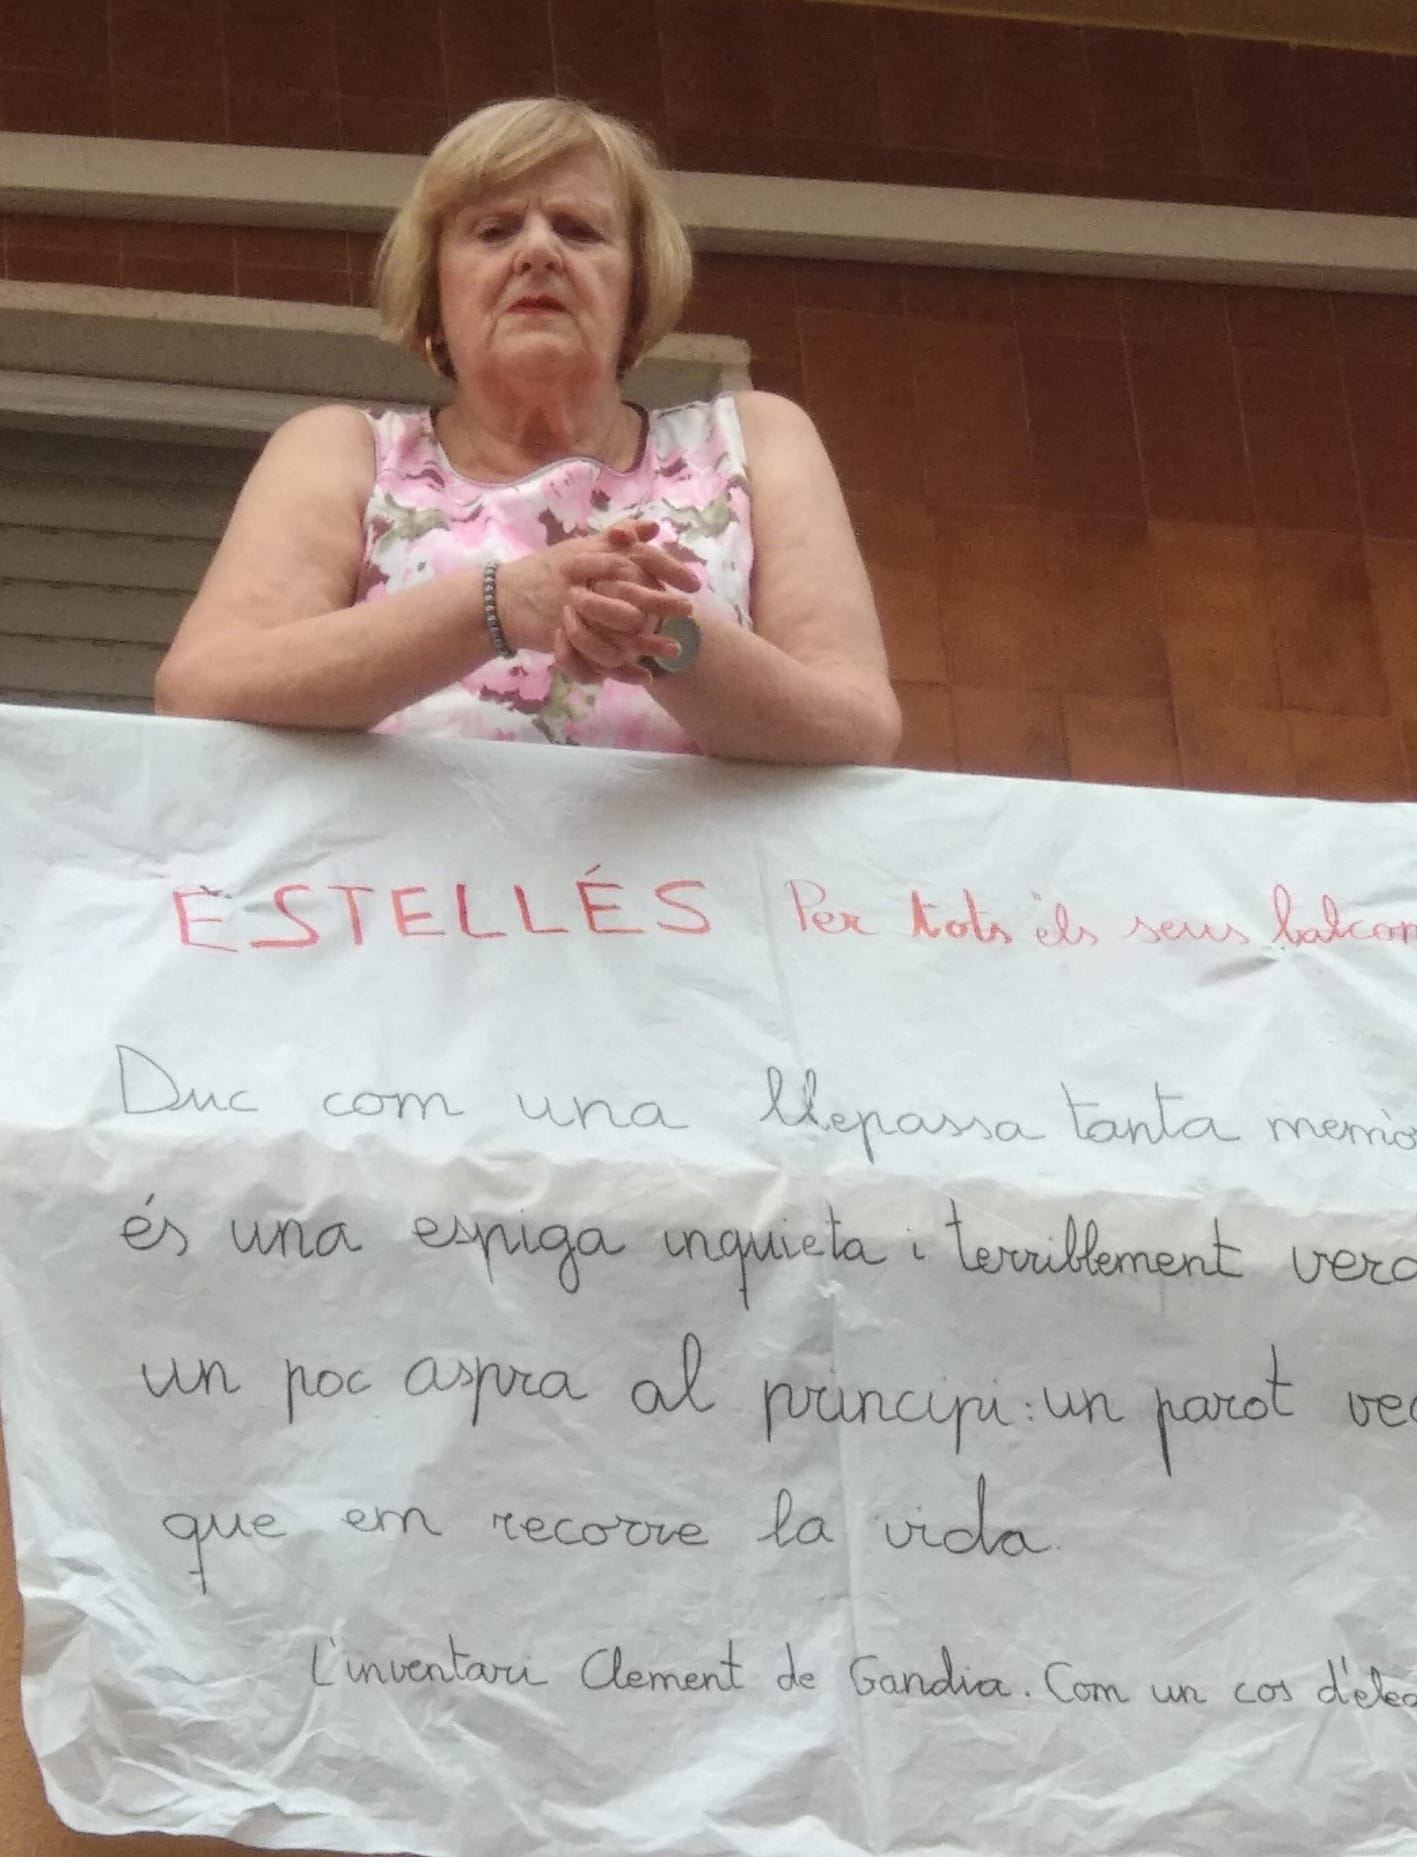 ESTELLÉS Per tots els seus balcon
Duc com una llepassa tanta memò
és una espiga inquieta i terriblement verd
un poc aspra al principi: un parot ve
que em recorre la vida.
L'inventari Clement de Gandia. Com un cos d'ele